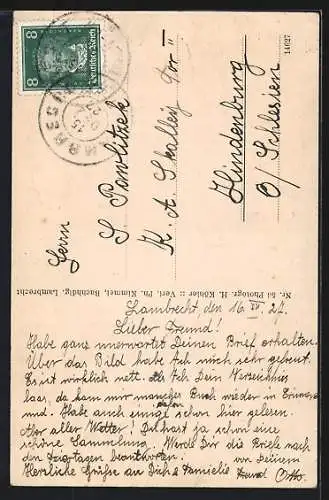 8 Deutsches Reich 8
14027
Herrn
S. Pawlitzek
K. A. Skalley
Hindenburg
O/Schlesien
Nr. 5d Photogr. H. Köhler :: Verl. Ph. Kimmel, Buchhdlg. Lambrecht
Lambrecht, den 16. 27.
Lieber Freund!
Habe ganz unerwartet Deinen Brief erhalten.
Über das Bild habe ich mich sehr gefreut.
Es ist wirklich nett. Als ich Dein Verzeichnis
las, da kam mir manches Buch wieder in Erinnerung
und. Habe auch einige davon schon hier gelesen.
Aber aller Wetter! Du hast ja schon eine
schöne Sammlung. Werde Dir die Briefe nach
den Feiertagen beantworten.
Herzliche Grüße an Dich & Familie von Deinem
Freund Otto.